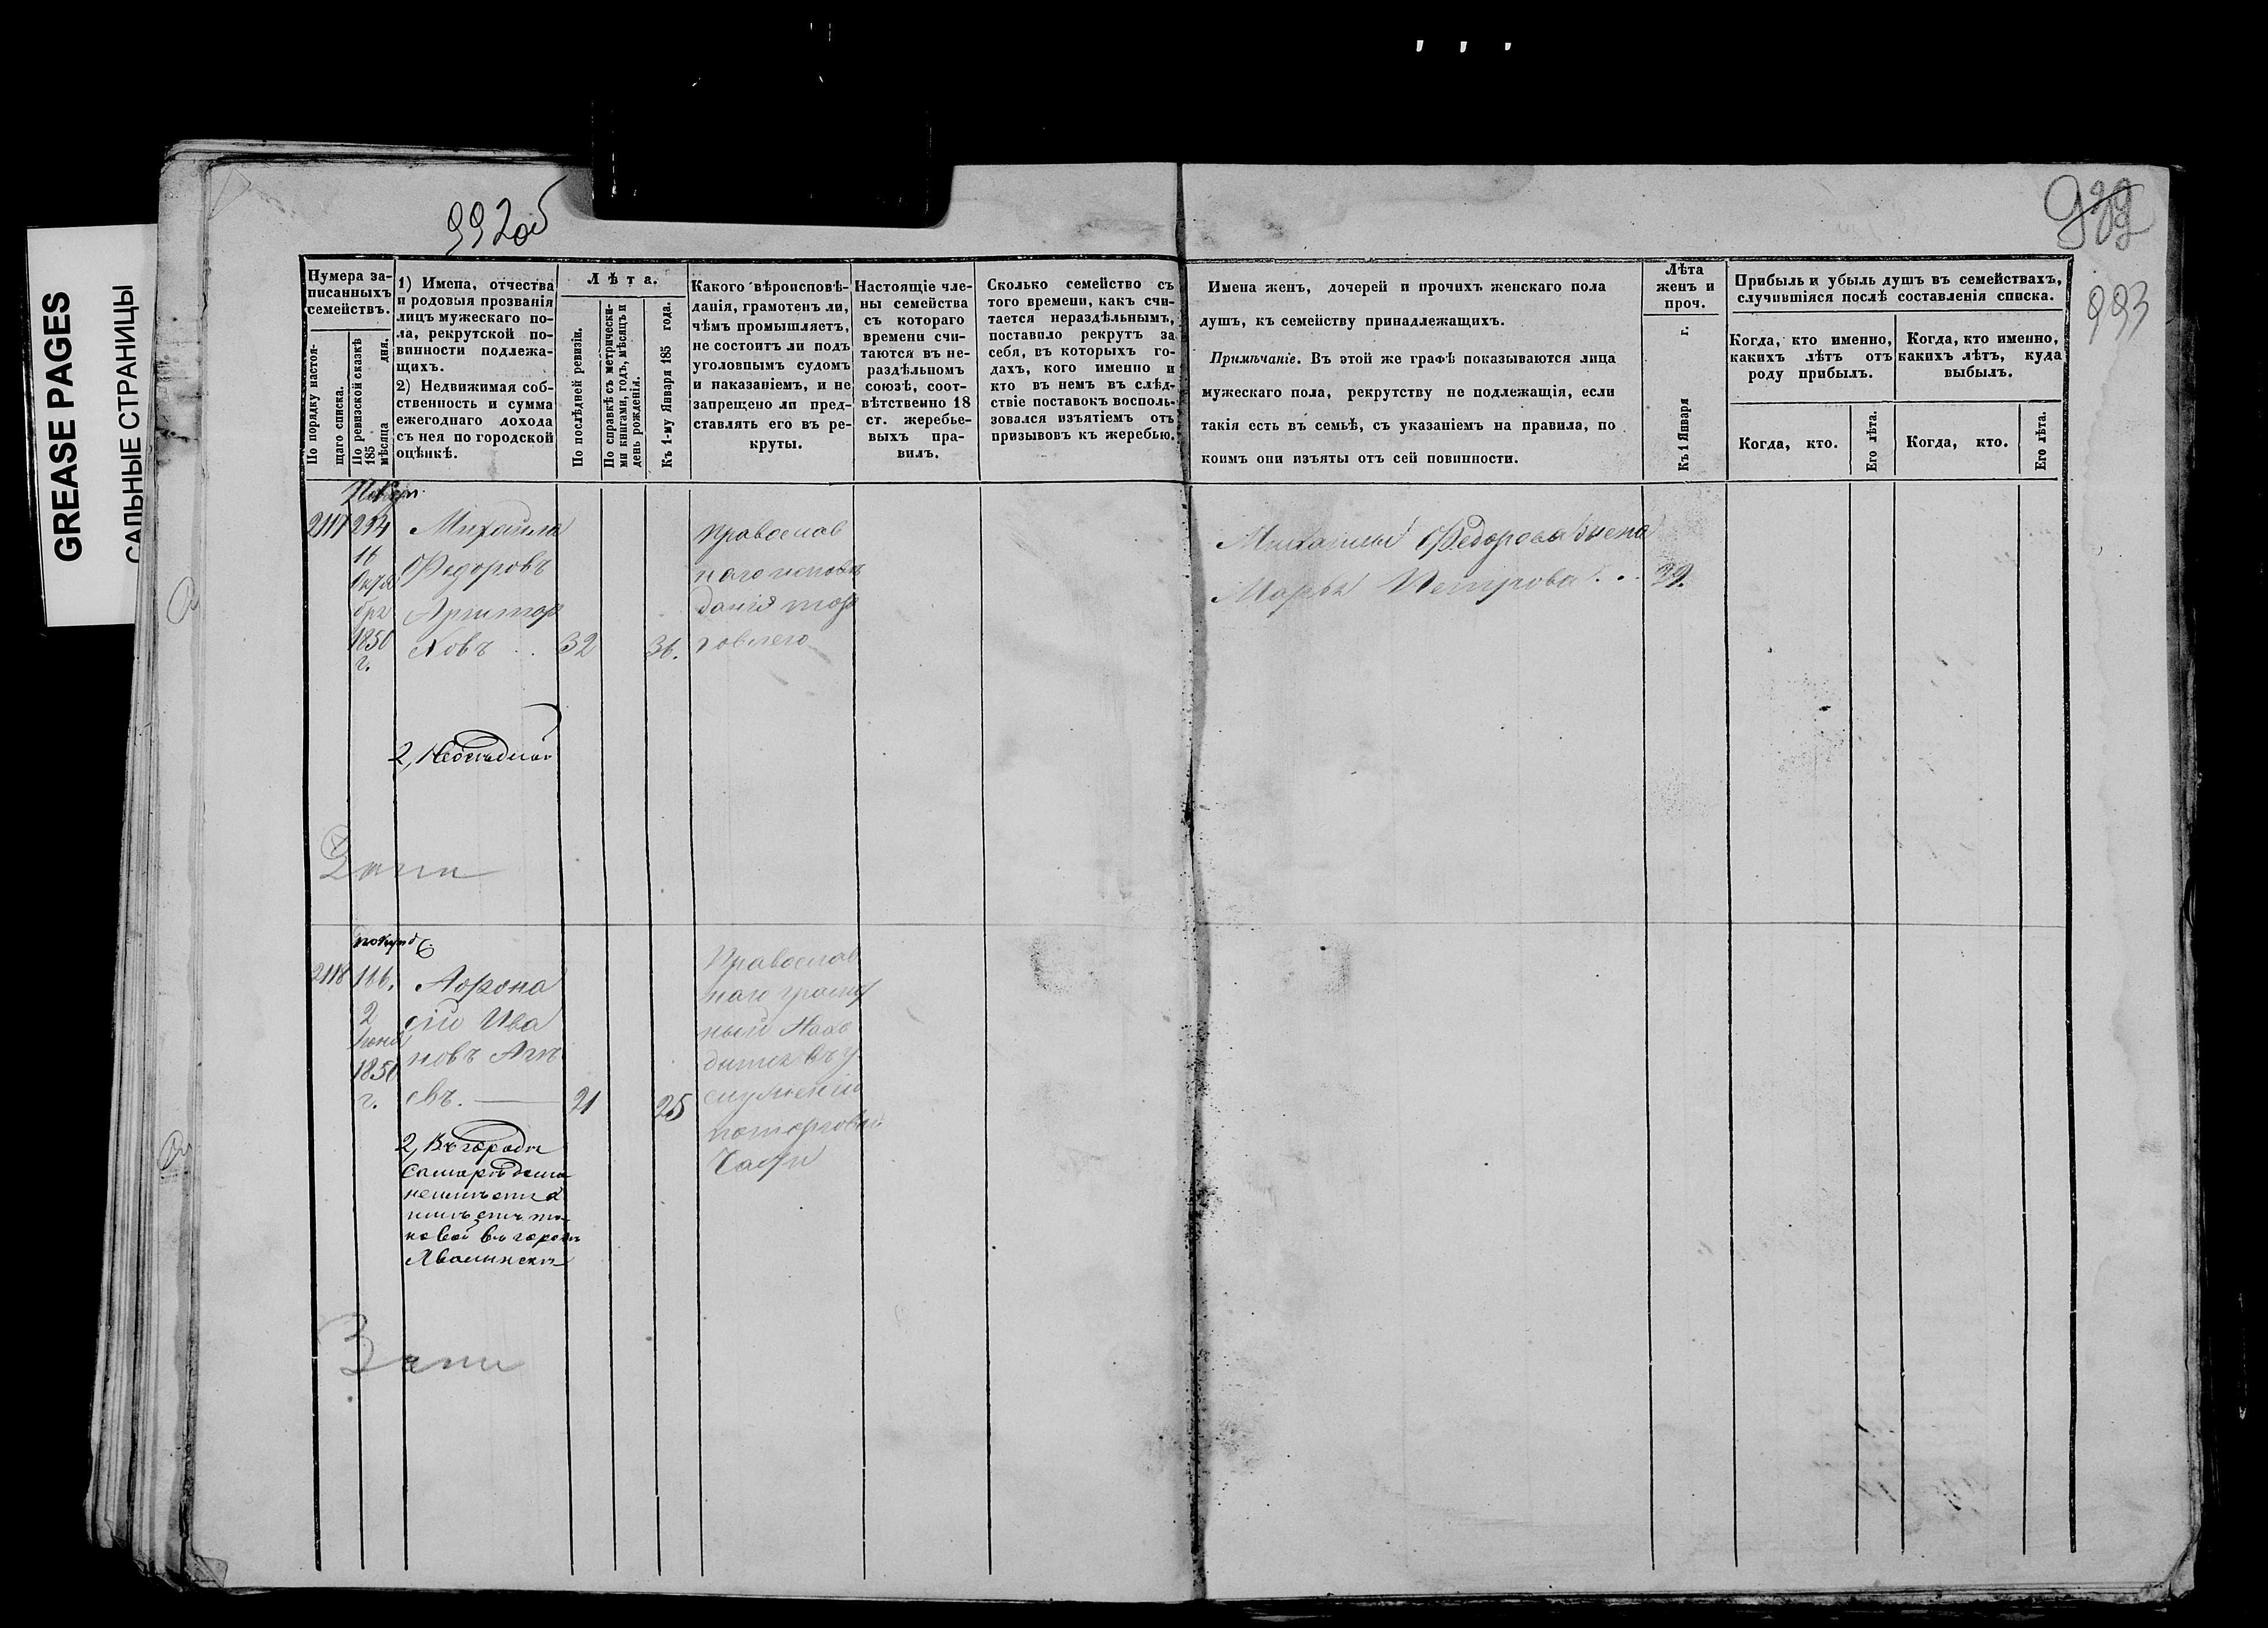 GREASE PAGES
САЛЬНЫЕ СТРАНИЦЫ
992об
993
Нумера за-
писанныхъ
семействъ.
По порядку настоя-
щаго списка.
По ревизской сказкѣ
185 дня.
мѣсяца
1) Имена, отчества
и родовыя прозванія
лицъ мужескаго по-
ла, рекрутской по-
винности подлежа-
щихъ.
2) Недвижимая соб-
ственность и сумма
ежегоднаго дохода
съ нея по городской
оцѣнкѣ.
Лѣта.
По послѣдней ревизіи.
По справкѣ съ метрически-
ми книгами, годъ, мѣсяцъ и
день рожденія.
Къ 1-му Января 185 года.
Какого вѣроисповѣ-
данія, грамотенъ ли,
чѣмъ промышляетъ,
не состоитъ ли подъ
уголовнымъ судомъ
и наказаніемъ, и не
запрещено ли пред-
ставлять его въ ре-
круты.
Настоящіе чле-
ны семейства
съ котораго
времени счи-
таются въ не-
раздѣльномъ
союзѣ, соот-
вѣтственно 18
ст. жеребье-
выхъ пра-
вилъ.
Сколько семейство съ
того времени, какъ счи-
тается нераздѣльнымъ,
поставило рекрутъ за
себя, въ которыхъ го-
дахъ, кого именно и
кто въ немъ въ слѣд-
ствіе поставокъ восполь-
зовался изъятіемъ отъ
призывовъ къ жеребью.
Имена женъ, дочерей и прочихъ женскаго пола
душъ, къ семейству принадлежащихъ.
Примѣчаніе. Въ этой же графѣ показываются лица
мужескаго пола, рекрутству не подлежащія, если
такія есть въ семьѣ, съ указаніемъ на правила, по
коимъ они изъяты отъ сей повинности.
Лѣта
женъ и
проч.
Къ 1 Января г.
Прибыль и убыль душъ въ семействахъ,
случившіяся послѣ составленія списка.
Когда, кто именно,
какихъ лѣтъ отъ
роду прибылъ.
Когда, кто именно,
какихъ лѣтъ, куда
выбылъ.
Когда, кто.
Его лѣта.
Когда, кто.
Его лѣта.
2117 294
16
Октя
бря
1850
г.
Михайла
Федоровъ
ховъ . . 32 36.
православ
наго исповѣ
данія тор
говлею
Михайлы Федорова жена
Марья Петрова . . 39.
2118 116.
2
Іюня
1850
г.
Афона
сій Ива
новъ Агѣ
евъ. — 21 25
Православ
наго грамот
ный Нахо
дится въ у
служеніи
по торговой
Части
2, Въ городѣ
Самарѣ дома
неимѣетъ а
имѣетъ та-
ковой въ городѣ
Хвалынскѣ